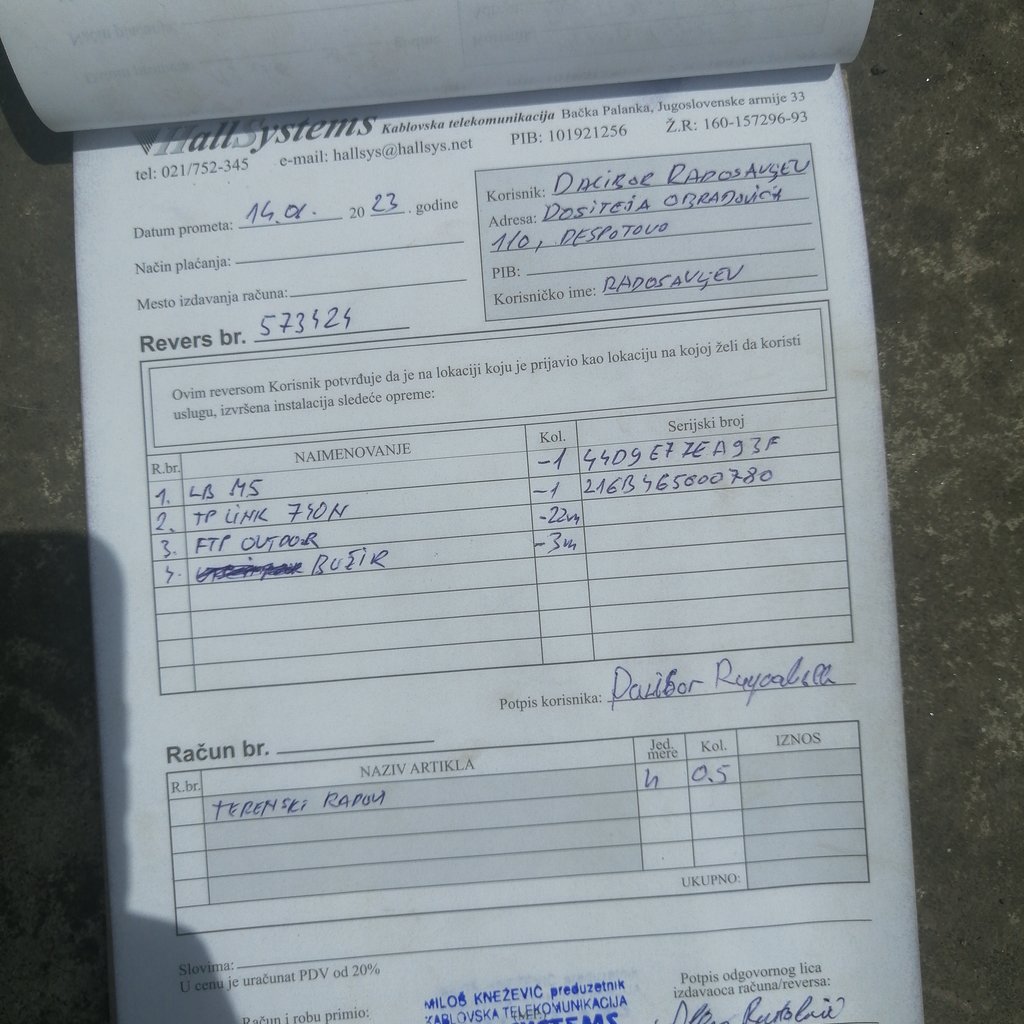 HallSystems Kablovska telekomunikacija Bačka Palanka, Jugoslovenske armije 33
tel: 021/752-345 e-mail: hallsys@hallsys.net PIB: 101921256 Ž.R: 160-157296-93
Datum prometa: 14.01. 20 23. godine
Način plaćanja:
Mesto izdavanja računa:
Korisnik: DALIBOR RADOSAVLJEV
Adresa: DOSITEJA OBRADOVIĆA
110, DESPOTOVO
PIB:
Korisničko ime: RADOSAVLJEV
Revers br. 573424
Ovim reversom Korisnik potvrđuje da je na lokaciji koju je prijavio kao lokaciju na kojoj želi da koristi
uslugu, izvršena instalacija sledeće opreme:
R.br. NAIMENOVANJE Kol. Serijski broj
1. LB M5 -1 44D9E77EA93F
2. TP LINK 740N -1 216B465000780
3. FTP OUTDOR -22m
4. BUŽIR -3m
Potpis korisnika: Dalibor
Račun br.
R.br. NAZIV ARTIKLA Jed. mere Kol. IZNOS
TERENSKI RADOVI h 0.5
UKUPNO:
Slovima:
U cenu je uračunat PDV od 20%
Račun i robu primio:
MILOŠ KNEŽEVIĆ preduzetnik
KABLOVSKA TELEKOMUNIKACIJA
Potpis odgovornog lica
izdavaoca računa/reversa: